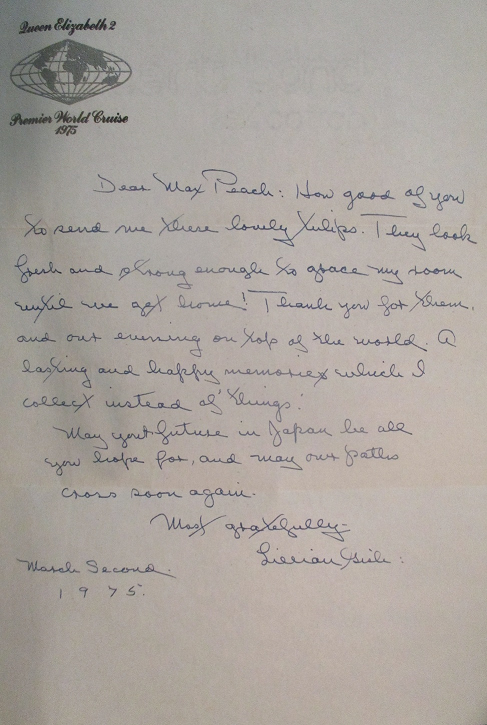 Queen Elizabeth 2
Premier World Cruise
1975
Dear Max Peach: How good of you
to send me these lovely tulips. They look
fresh and strong enough to grace my room
until we get home! Thank you for them,
and our evening on top of the world. A
lasting and happy memories which I
collect instead of 'things'.
May your future in Japan be all
you hope for, and may our paths
cross soon again.
Most gratefully-
Lillian Gish:
March Second.
1975.